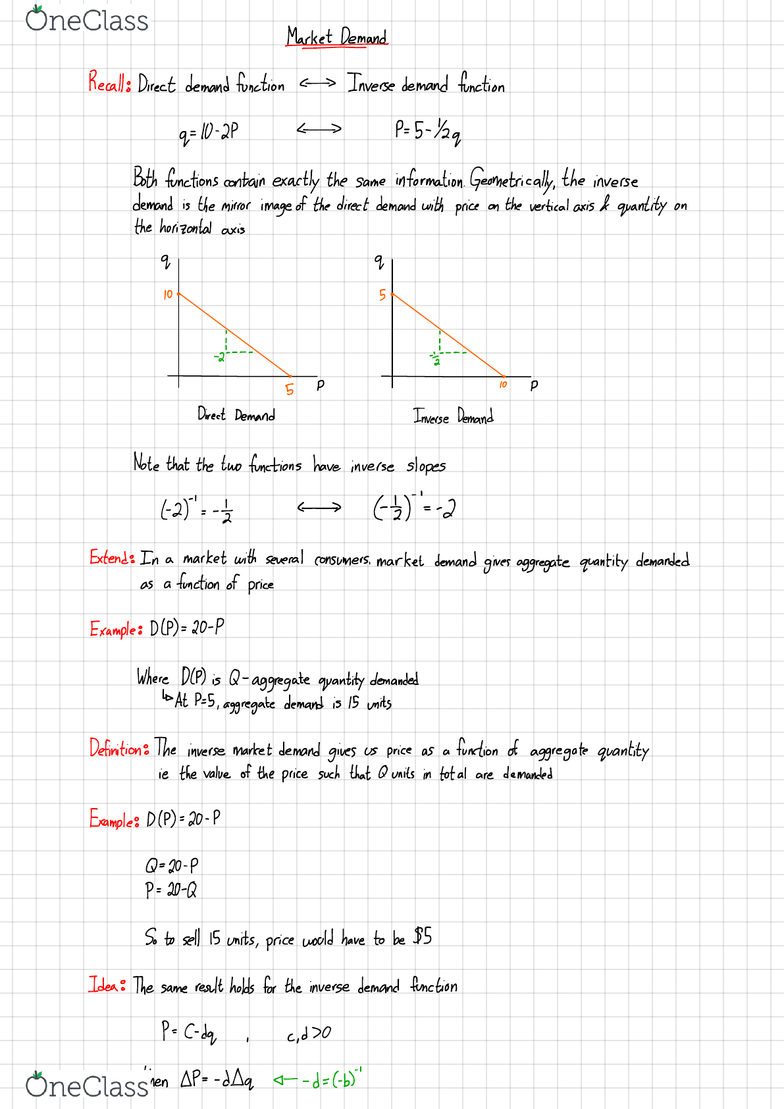 OneClass
Market Demand
Recall: Direct demand function ⟷ Inverse demand function
q=10-2P ⟷ P=5-1/2q
Both functions contain exactly the same information. Geometrically, the inverse
demand is the mirror image of the direct demand with price on the vertical axis & quantity on
the horizontal axis
q q
10 5
-2 -1/2
5 P 10 P
Direct Demand Inverse Demand
Note that the two functions have inverse slopes
(-2)⁻¹ = -1/2 ⟷ (-1/2)⁻¹ = -2
Extend: In a market with several consumers, market demand gives aggregate quantity demanded
as a function of price
Example: D(P)= 20-P
Where D(P) is Q-aggregate quantity demanded
↳At P=5, aggregate demand is 15 units
Definition: The inverse market demand gives us price as a function of aggregate quantity
ie the value of the price such that Q units in total are demanded
Example: D(P)= 20-P
Q=20-P
P= 20-Q
So to sell 15 units, price would have to be $5
Idea: The same result holds for the inverse demand function
P= C-dq , c,d>0
hen ΔP= -dΔq ← -d=(-b)⁻¹
OneClass